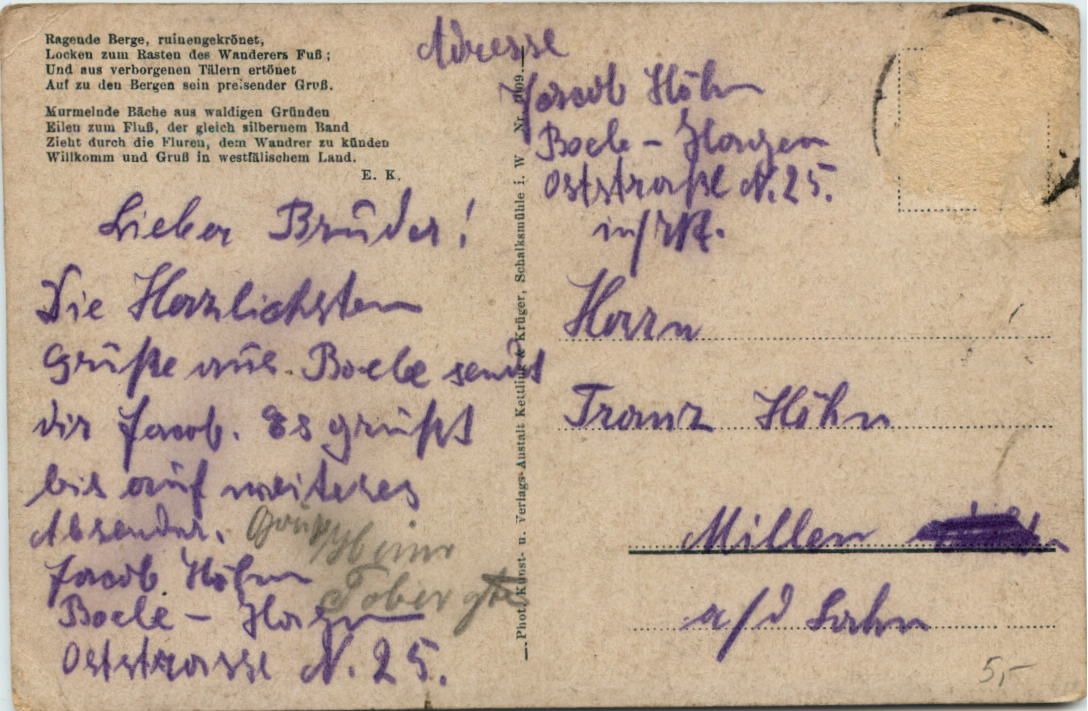 Ragende Berge, ruinengekrönet,
Locken zum Rasten des Wanderers Fuß;
Und aus verborgenen Tälern ertönet
Auf zu den Bergen sein preisender Gruß.
Murmelnde Bäche aus waldigen Gründen
Eilen zum Fluß, der gleich silbernem Band
Zieht durch die Fluren, dem Wandrer zu künden
Willkomm und Gruß in westfälischem Land.
E. K.
Lieber Bruder!
Die Herzlichsten
Grüße aus Boele sendet
dir Jacob. Es grüßt
bis auf weiteres
Absender.
Jacob Höhn
Boele - Hagen
Oststrasse N. 25.
Gruß Heinr
Tobergte
Phot. Kunst- u. Verlags-Anstalt Kettling & Krüger, Schalksmühle i. W Nr.
Adresse
Jacob Höhn
Boele - Hagen
Oststraße N. 25.
Herrn
Franz Höhn
Millen
a/d Lahn
5,-